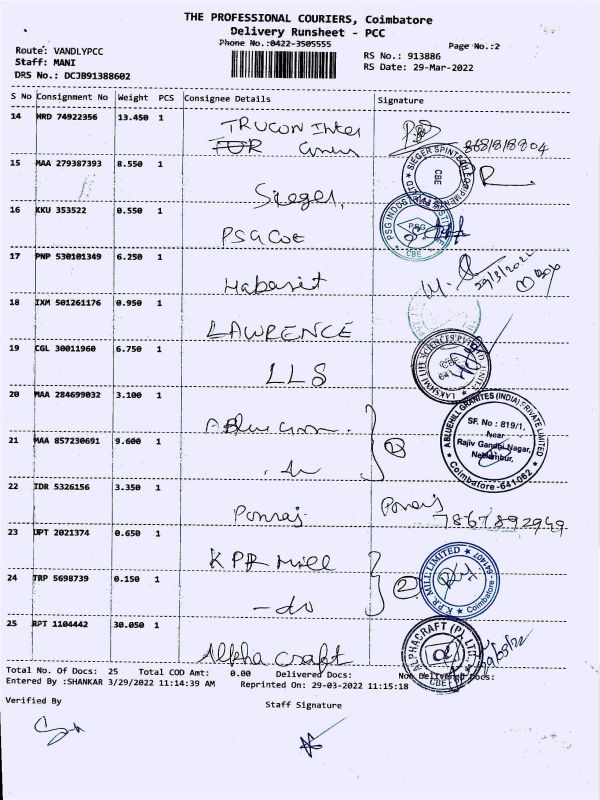 THE PROFESSIONAL COURIERS, Coimbatore
Delivery Runsheet - PCC
Phone No.:0422-3505555
Page No.:2
Route: VANDLYPCC
Staff: MANI
DRS No.: DCJB91388602
RS No.: 913886
RS Date: 29-Mar-2022
S No Consignment No Weight PCS Consignee Details Signature
14 HRD 74922356 13.450 1 TRUCON Inter
FOR
8681818804
15 MAA 279387393 8.550 1 Sieger,
SIEGER SPINTECH EQUIPMENTS
LTD
CBE
16 KKU 353522 0.550 1 PSG COE
PSG INDUSTRIAL INSTITUTE
PSG
CBE
17 PNP 530101349 6.250 1 Habasit
29/3/2022
18 IXM 501261176 0.950 1 LAWRENCE
19 CGL 30011960 6.750 1 LLS
LAKSHMI LIFE SCIENCES
CBE
20 MAA 284699032 3.100 1
21 MAA 857230691 9.600 1
ABLUEHILL GRANITES (INDIA) PRIVATE LIMITED
SF. No : 819/1,
Near
Rajiv Gandhi Nagar,
Coimbatore-641-062
22 IDR 5326156 3.350 1 Ponraj
Ponraj
7867892949
23 UPT 2021374 0.650 1 KPR Mill
24 TRP 5698739 0.150 1 - do
2
K.P.R. MILL LIMITED
Coimbatore - 641407
25 RPT 1104442 30.050 1 Alpha craft
ALPHACRAFT (P) LTD.
CBE
29/03/22
Total No. Of Docs: 25 Total COD Amt: 0.00 Delivered Docs: Non Delivered Docs:
Entered By :SHANKAR 3/29/2022 11:14:39 AM Reprinted On: 29-03-2022 11:15:18
Verified By
Staff Signature